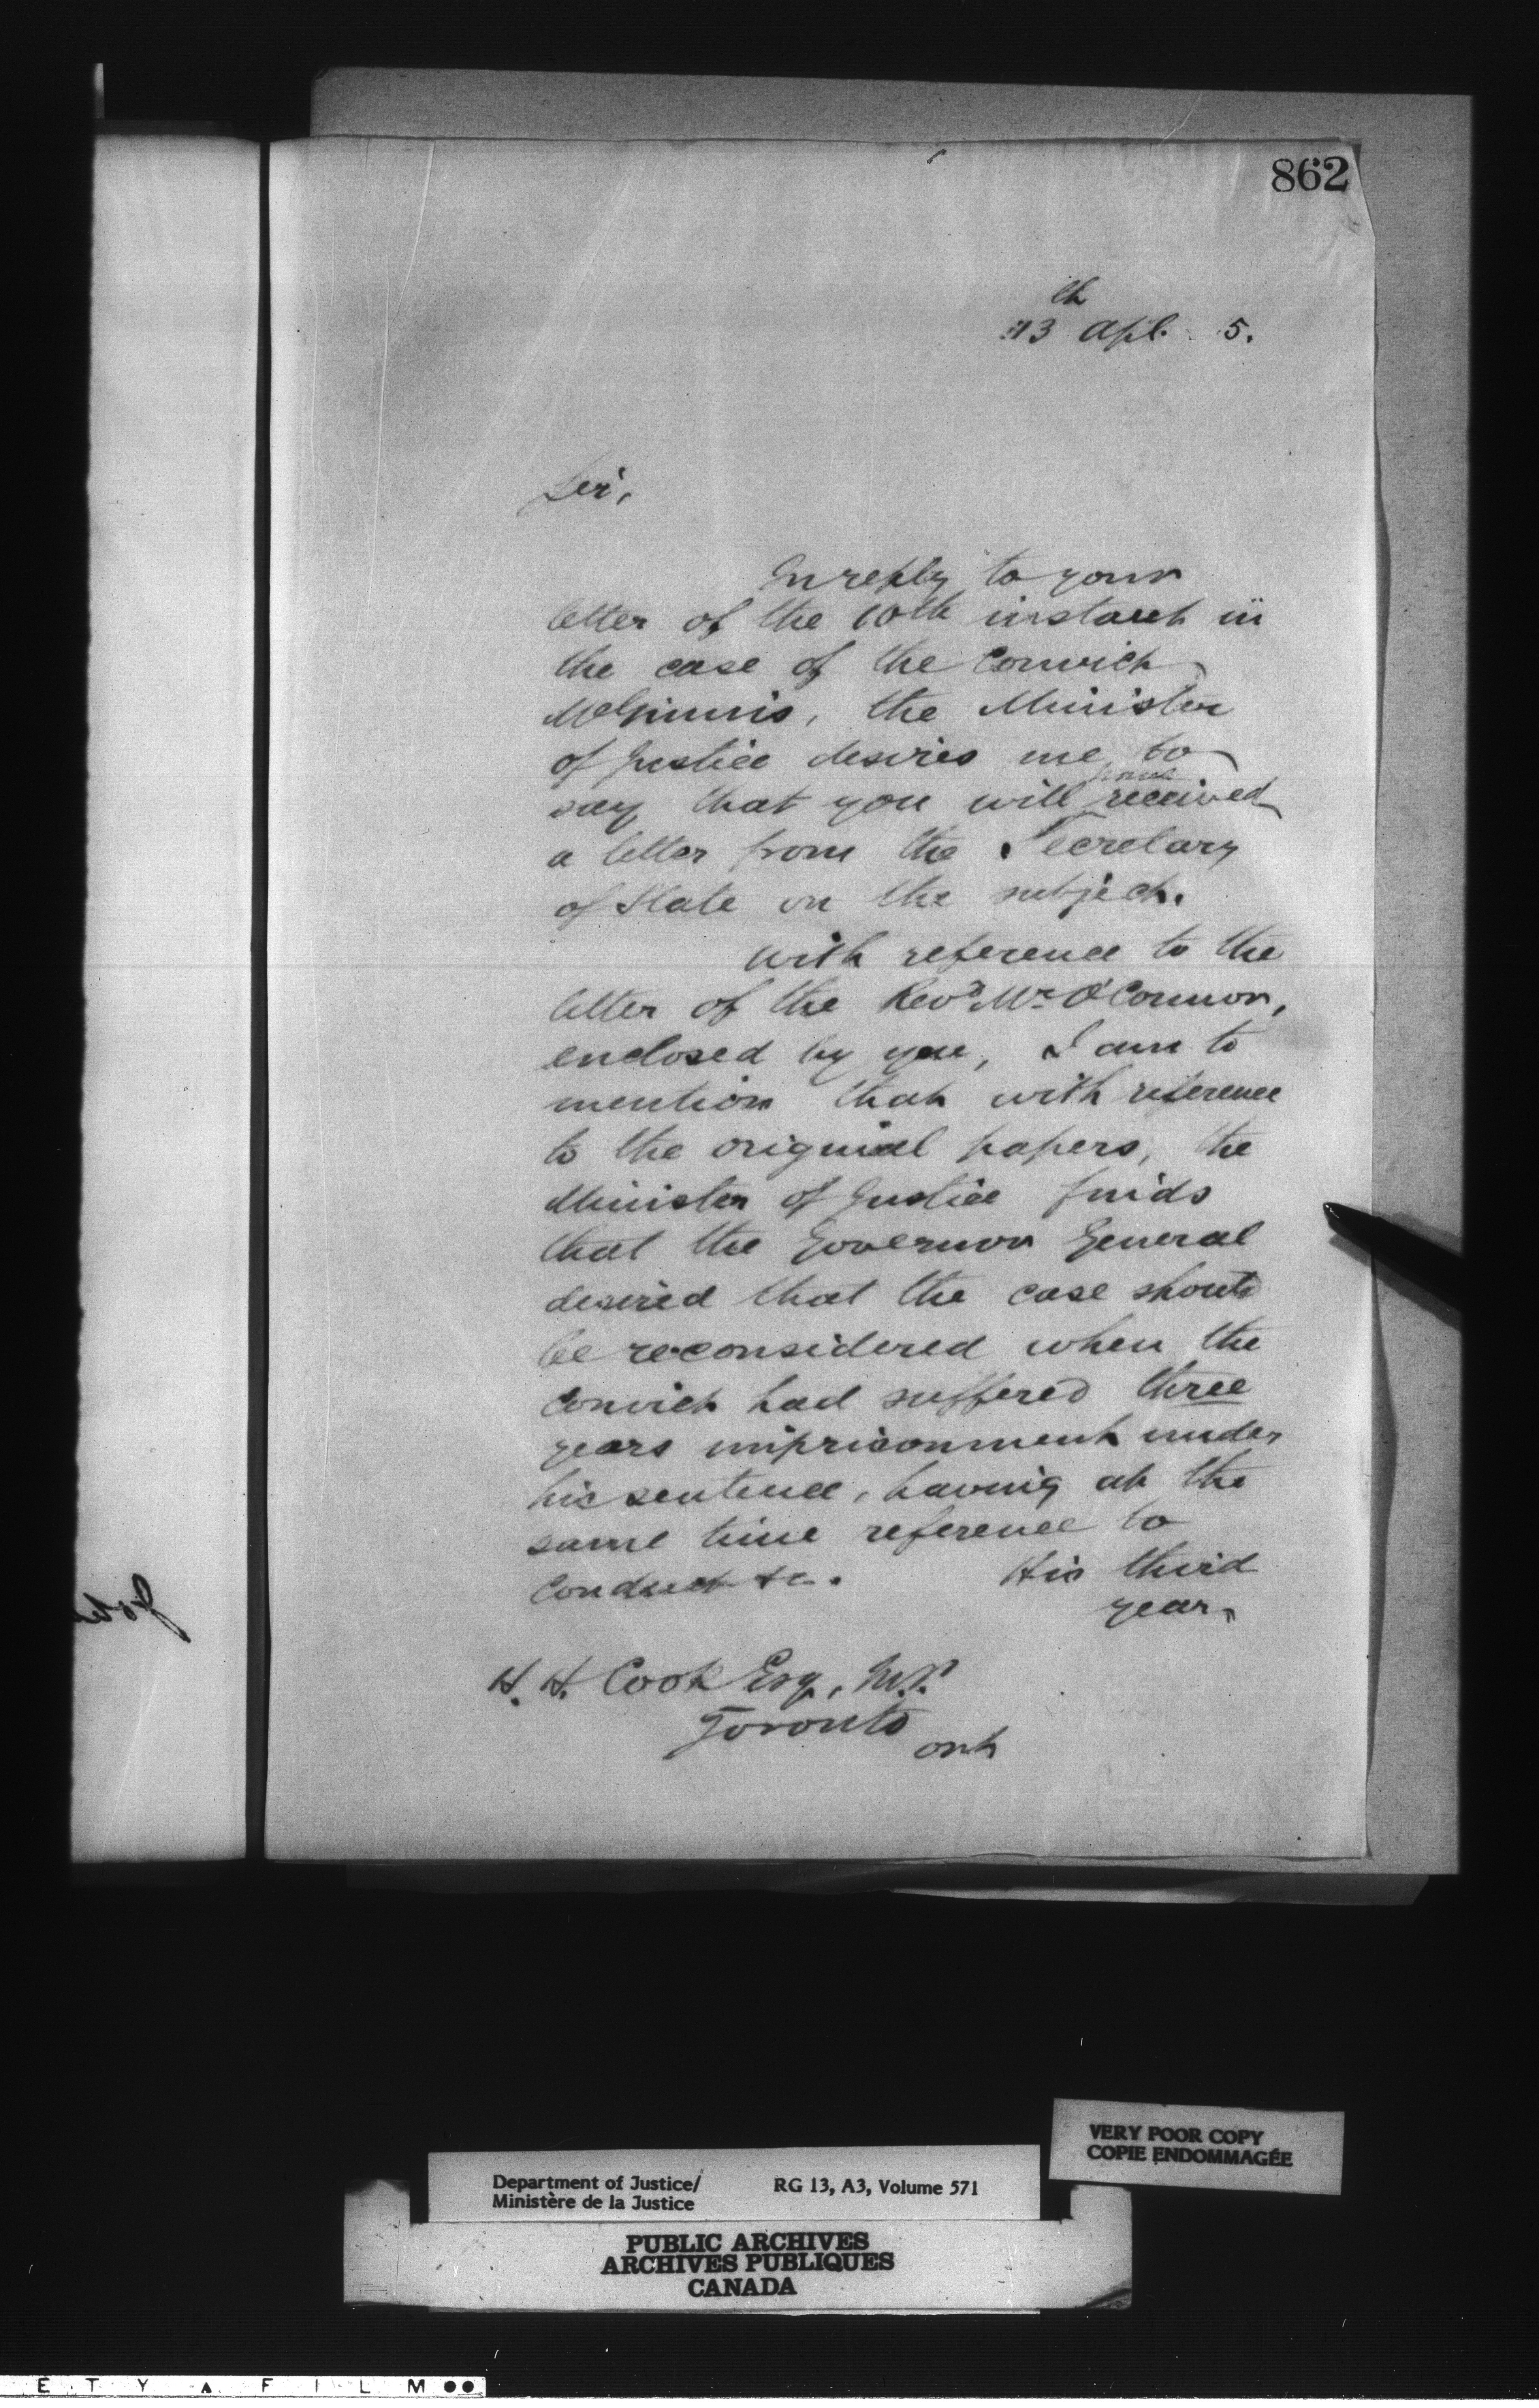 862
13th Apl. 5.
Sir,
In reply to your
letter of the 10th instant in
the case of the Convict
McGinnis, the Minister
of Justice desires me to
say that you will have received
a letter from the Secretary
of State on the subject.
With reference to the
letter of the Revd Mr O'Connor,
enclosed by you, I am to
mention that with reference
to the original papers, the
Minister of Justice finds
that the Governor General
desired that the case should
be reconsidered when the
Convict had suffered three
years imprisonment under
his sentence, having at the
same time reference to
Conduct &c. His third
year,
H. H. Cook Esq, M.P.
Toronto
Ont
VERY POOR COPY
COPIE ENDOMMAGÉE
Department of Justice/ RG 13, A3, Volume 571
Ministère de la Justice
PUBLIC ARCHIVES
ARCHIVES PUBLIQUES
CANADA
E T Y A F I L M